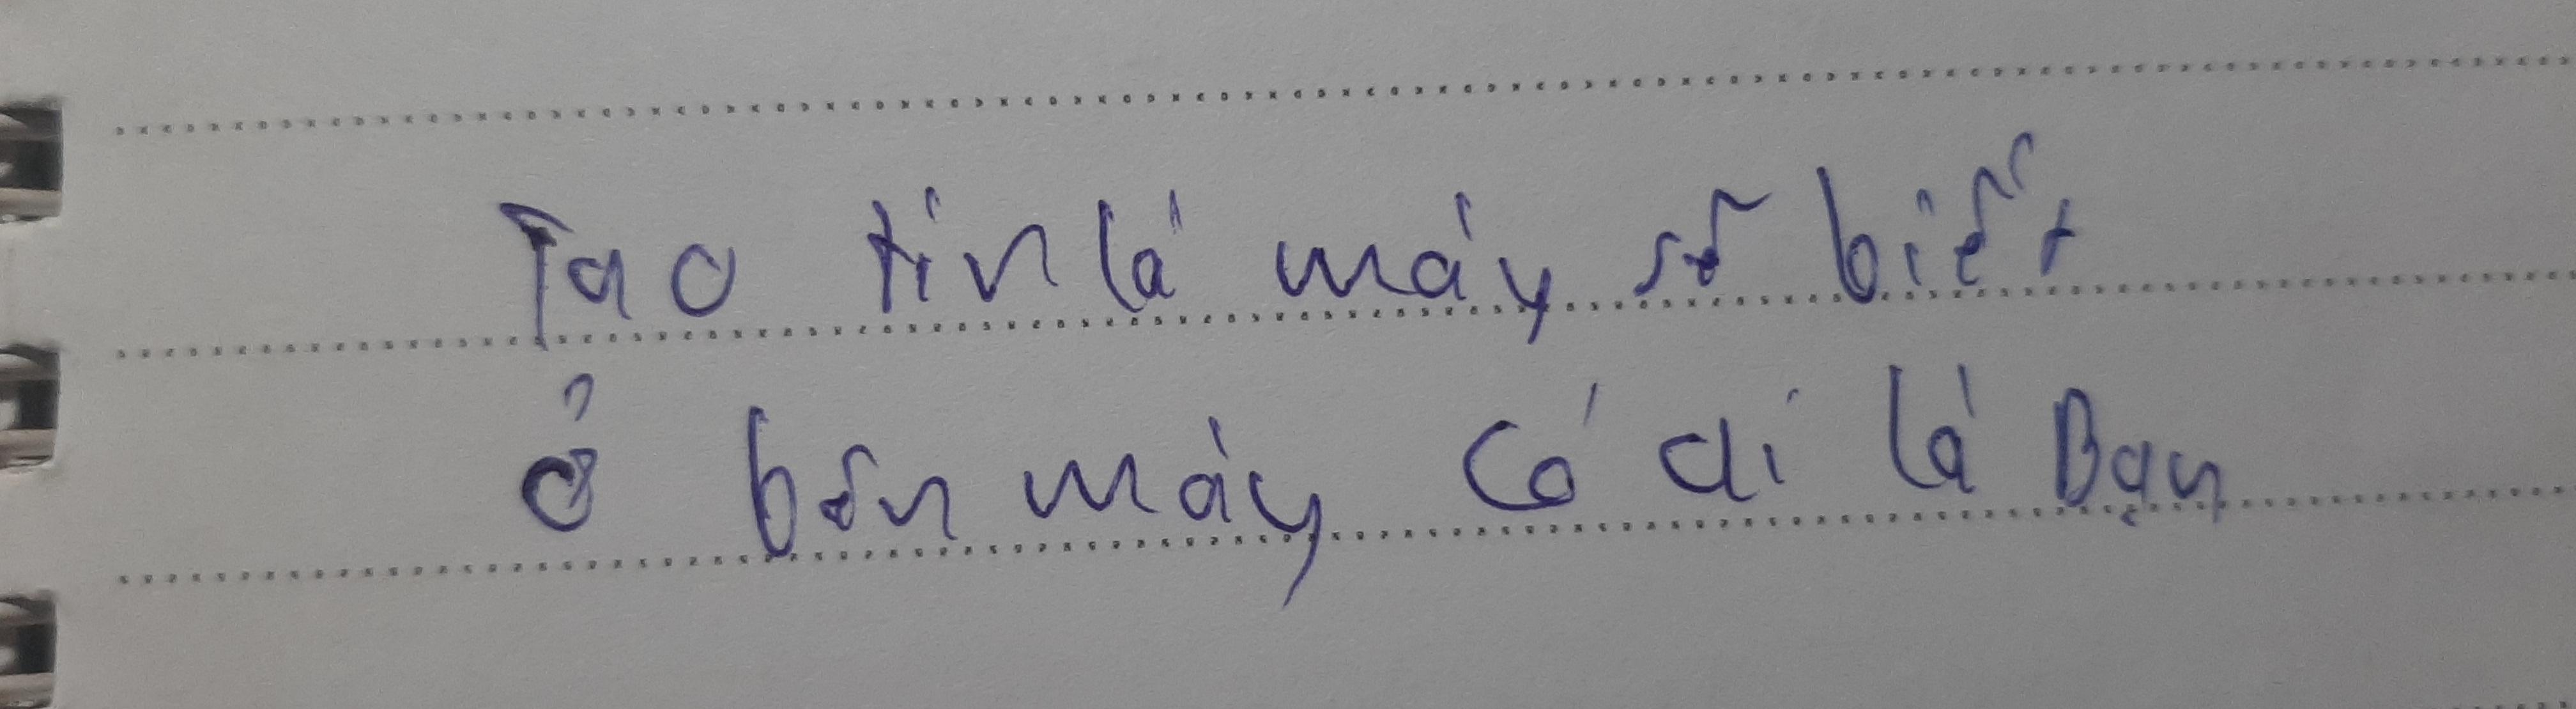 Tao tin là mày sẽ biết
ở bên mày có ai là Bạn